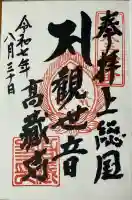 奉拝 上総国
正観世音
高蔵寺
令和七年
八月三十日